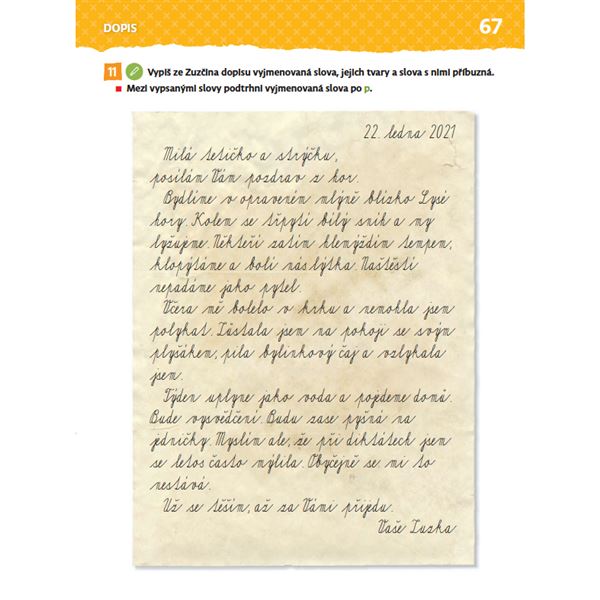 DOPIS
67
11 Vypiš ze Zuzčina dopisu vyjmenovaná slova, jejich tvary a slova s nimi příbuzná.
Mezi vypsanými slovy podtrhni vyjmenovaná slova po p.
22. ledna 2021
Milá tetičko a strýčku,
posílám Vám pozdrav z hor.
Bydlíme v opraveném mlýně blízko Lysé
hory. Kolem se třpytí bílý sníh a my
lyžujeme. Někteří zatím hlemýždím tempem,
klopýtáme a bolí nás lýtka. Naštěstí
nepadáme jako pytel.
Včera mě bolelo v krku a nemohla jsem
polykat. Zůstala jsem na pokoji se svým
plyšákem, pila bylinkový čaj a vzlykala
jsem.
Týden uplyne jako voda a pojedeme domů.
Bude vysvědčení. Budu zase pyšná na
jedničky. Myslím ale, že při diktátech jsem
se letos často mýlila. Obyčejně se mi to
nestává.
Už se těším, až za Vámi přijedu.
Vaše Zuzka